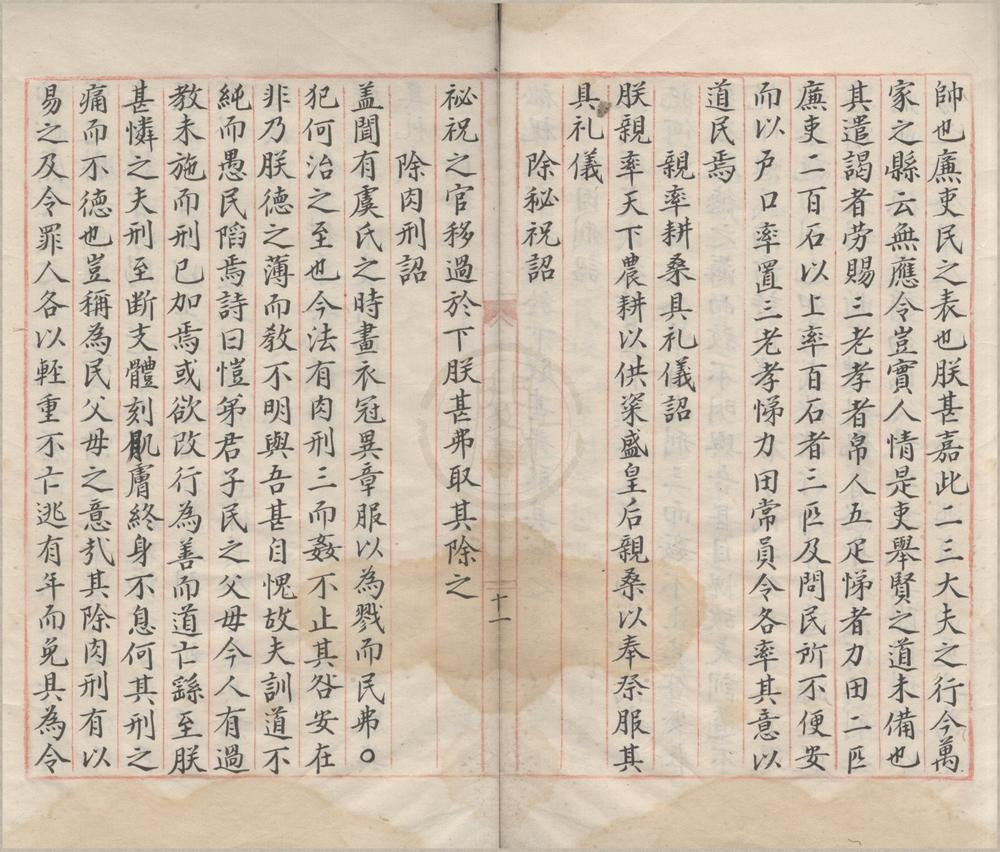 帥也廉吏民之表也朕甚嘉此二三大夫之行今萬
家之縣云無應令豈實人情是吏舉賢之道未備也
其遣謁者勞賜三老孝者帛人五疋悌者力田二匹
廉吏二百石以上率百石者三匹及問民所不便安
而以戶口率置三老孝悌力田常員令各率其意以
道民焉
親率耕桑具礼儀詔
朕親率天下農耕以供粢盛皇后親桑以奉祭服其
具礼儀
除秘祝詔
祕祝之官移過於下朕甚弗取其除之
除肉刑詔
盖聞有虞氏之時畫衣冠異章服以為戮而民弗○
犯何治之至也今法有肉刑三而姦不止其咎安在
非乃朕德之薄而敎不明與吾甚自愧故夫訓道不
純而愚民陷焉詩曰愷弟君子民之父母今人有過
教未施而刑已加焉或欲改行為善而道亡繇至朕
甚憐之夫刑至断支體刻肌膚終身不息何其刑之
痛而不德也豈稱為民父母之意㢤其除肉刑有以
易之及令罪人各以輕重不亡逃有年而免具為令
十一